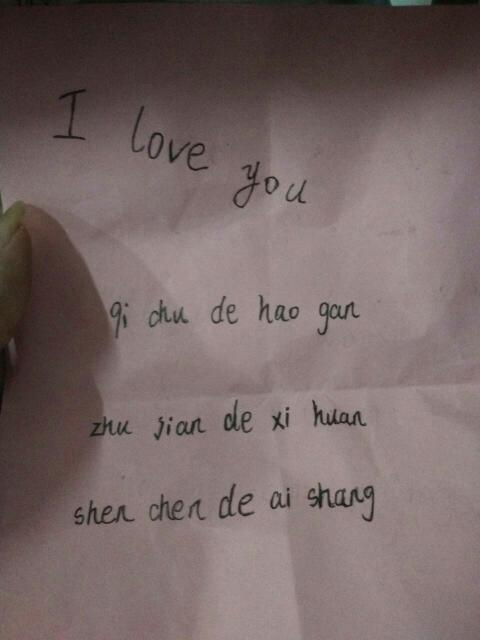 I love you
qi chu de hao gan
zhu jian de xi huan
shen chen de ai shang